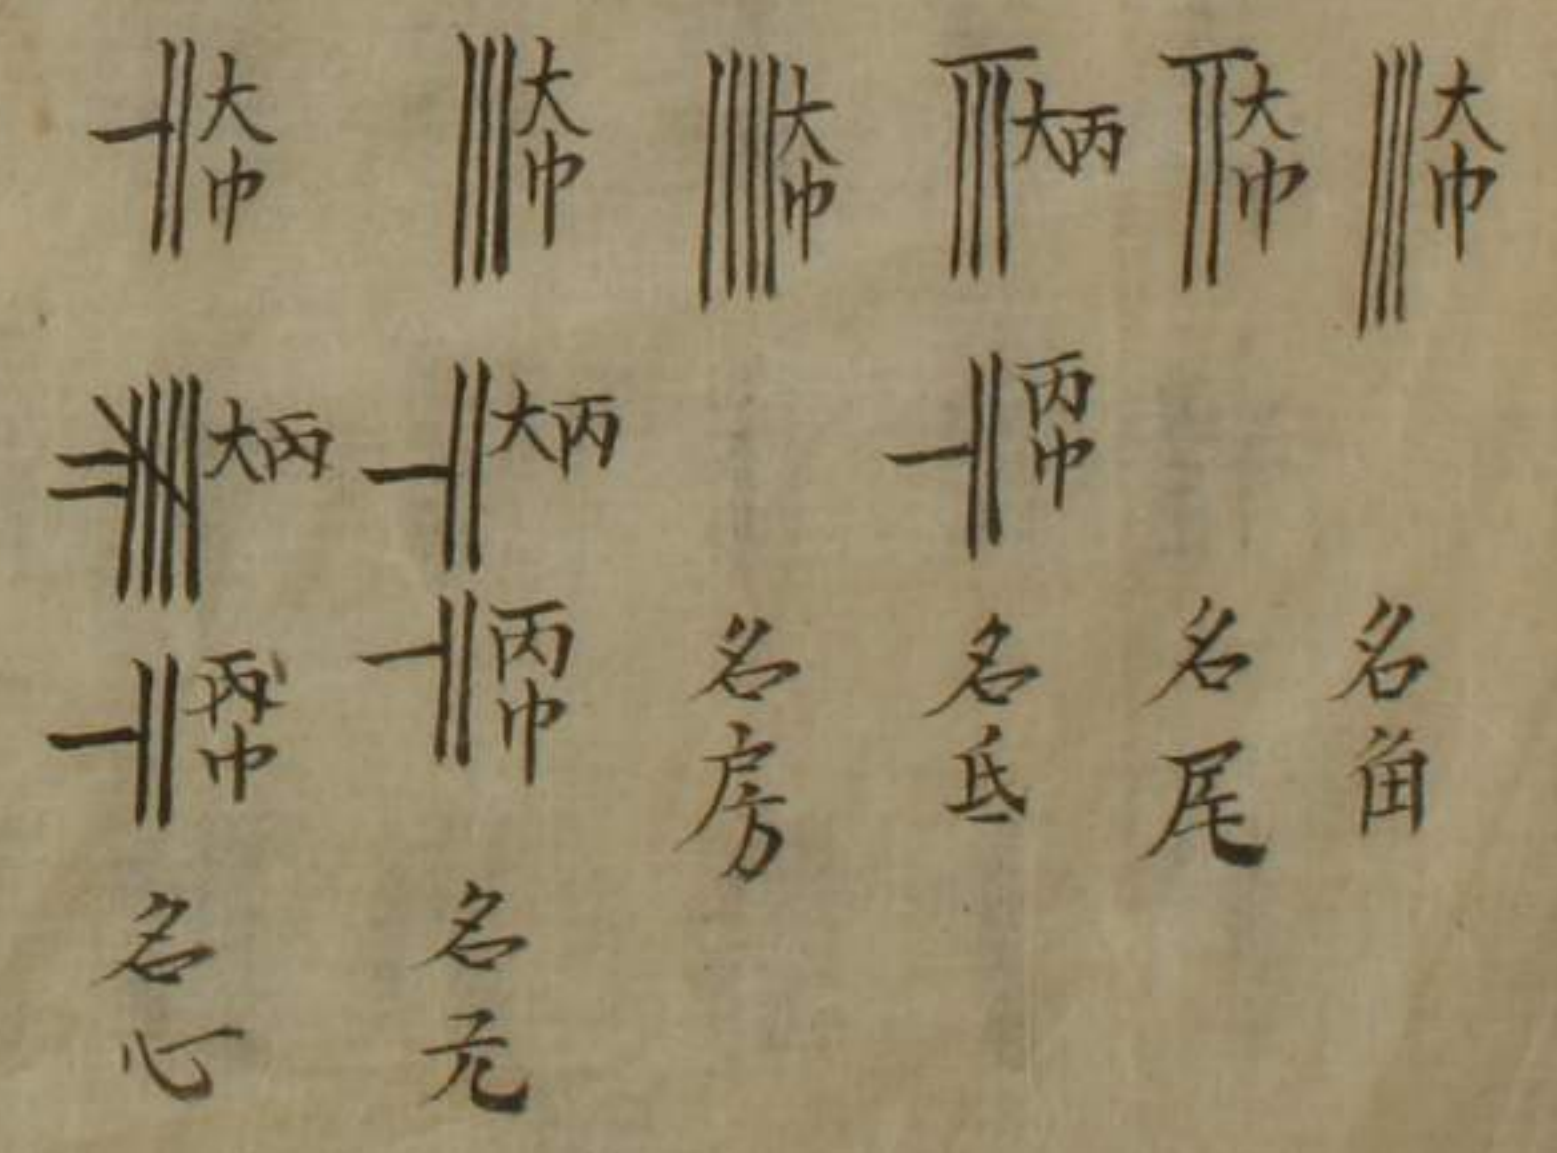 大巾 名角
大巾 名尾
大丙 丙巾 名氐
大巾 名房
大巾 大丙 丙巾 名亢
大巾 大丙 丙巾 名心